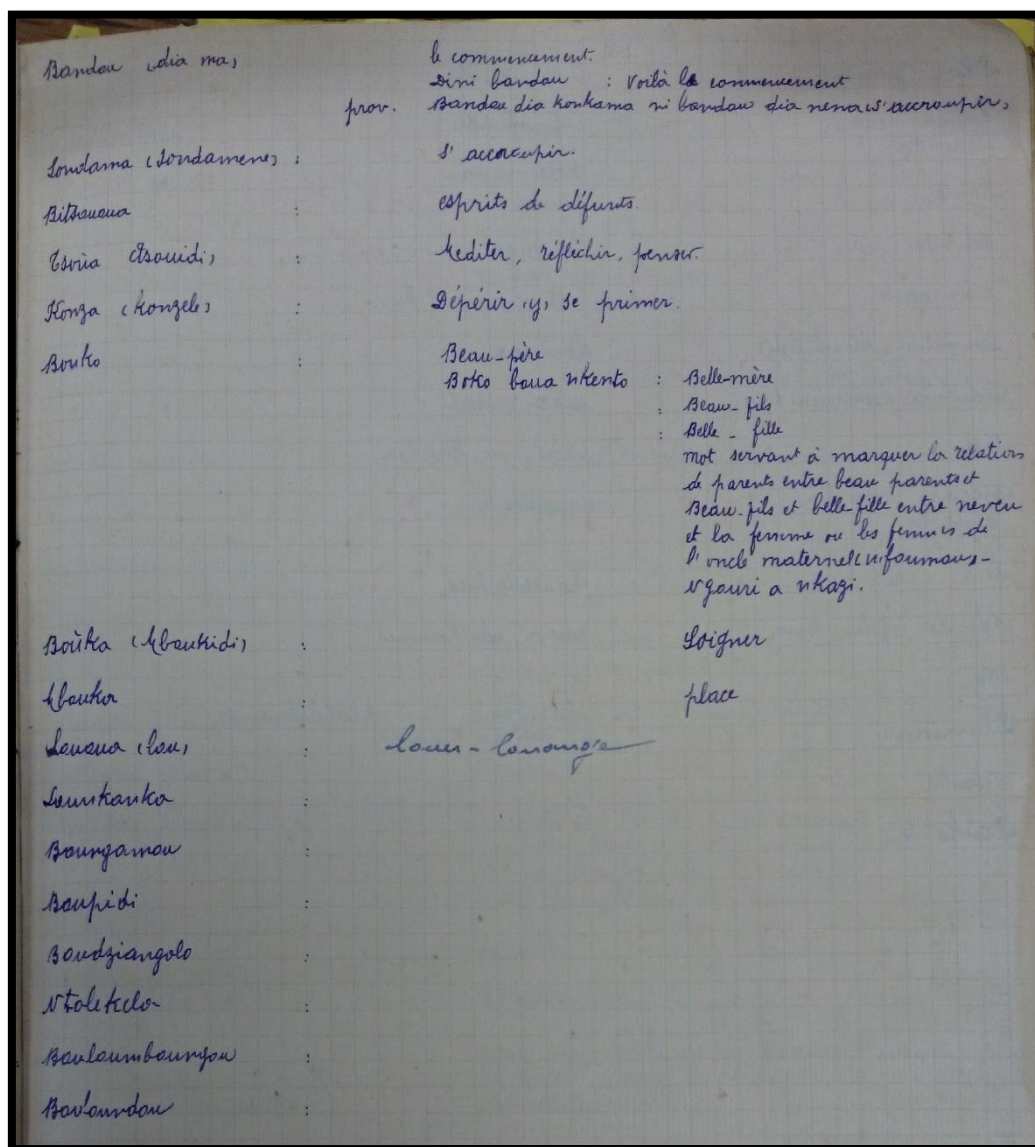 Bandou (dia ma) le commencement.
Dini bandou : Voilà le commencement
prov. Bandou dia konkama ni bandou dia nena (s'accroupir)
Sondama (Sondamene) : s'accroupir.
Bitsouaua : esprits de défunts.
Tsoùa (tsouidi) : Mediter, réfléchir, penser.
Konza (konzele) : Dépérir (y) se primer.
Bouko : Beau-père
Boko boua nkento : Belle-mère
: Beau-fils
: Belle-fille
mot servant à marquer la relations
de parents entre beau parents et
Beau-fils et belle-fille entre neveu
et la femme ou les femmes de
l'oncle maternel (nfoumou)-
Ngouri a nkazi.
Boùka (Mboukidi) : Soigner
Mbouka : place
Louaua (lou) : louer - louange
Lounkanka :
Boungamou :
Boupidi :
Boudziangolo :
Ntolekela :
Bouloumboungou :
Boutoundou :